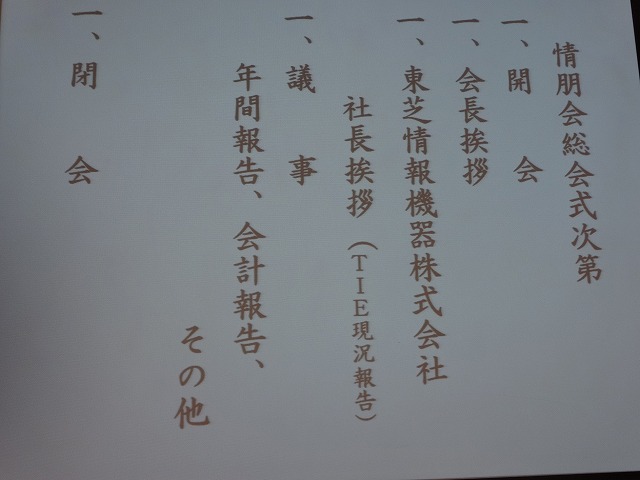 情朋会総会式次第
一、開会
一、会長挨拶
一、東芝情報機器株式会社
社長挨拶(TIE現況報告)
一、議事
年間報告、会計報告、
その他
一、閉会